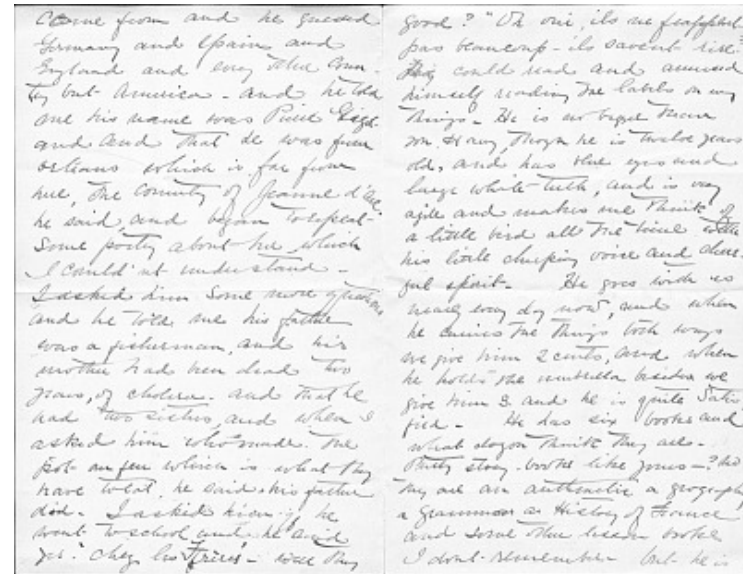 came from and he guessed
Germany and Spain and
England and every other coun-
try but America - and he told
me his name was Pierre
and and that he was from
Orleans which is far from
here, the country of Jeanne d'Arc
he said, and began to repeat
some poetry about her, which
I could'nt understand -
I asked him some more questions
and he told me his father
was a fisherman, and his
mother had been dead two
years, of cholera. and that he
had two sisters, and when I
asked him who made the
pot au feu which is what they
have to eat, he said his father
did. I asked him if he
went to school and he said
yes. Chez les frères - were they
good? "Oh oui, ils ne frappent
pas beaucoup - ils savent rire.
He could read and amused
himself reading the labels on my
things - He is no bigger than
, though he is twelve years
old, and has blue eyes and
large white teeth, and is very
agile and makes me think of
a little bird all the time with
his little chirping voice and cheer-
ful spirit - He goes with us
nearly every day now, and when
he carries the things both ways
we give him 2 cents, and when
he holds the umbrella besides we
give him 3 and he is quite satis
fied - He has six books and
what do you think they are -
Pretty story books like yours - ? No
they are an arithmetic a geography
a Grammar a History of France
and some other lesson books
I dont remember but he is